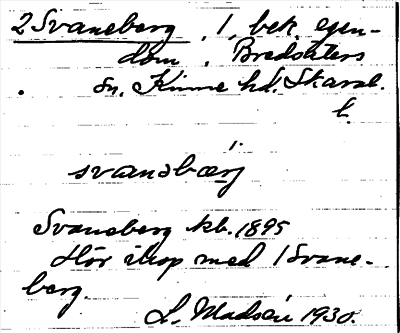 2 Svaneberg, 1, bek. egen-
dom, Bredsäters
sn, Kinne hd, Skarab.
l.
svanəbærj
Svaneberg kb. 1895
Hör ihop med 1 Svane-
berg.
L. Madsén 1930.